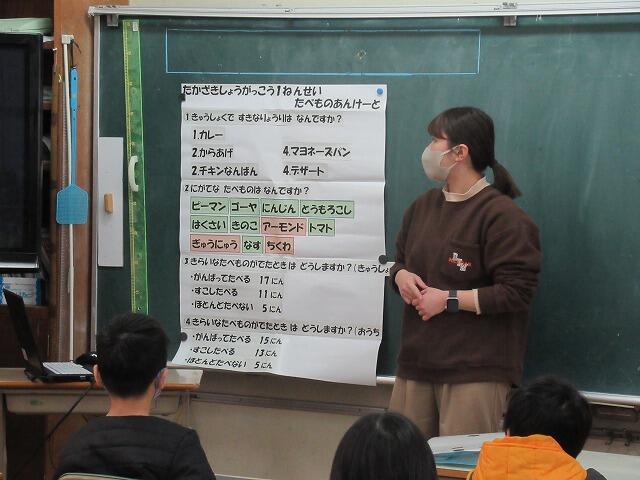 たかざきしょうがっこう1ねんせい
たべものあんけーと
1きゅうしょくで すきなりょうりは なんですか?
1.カレー
2.からあげ 4.マヨネーズパン
2.チキンなんばん 4.デザート
2にがてな たべものは なんですか?
ピーマン ゴーヤ にんじん とうもろこし
はくさい きのこ アーモンド トマト
ぎゅうにゅう なす ちくわ
3きらいなたべものがでたときは どうしますか?(きゅうしょ
・がんばってたべる 17にん
・すこしたべる 11にん
・ほとんどたべない 5にん
4きらいなたべものがでたときは どうしますか?(おうち
・がんばってたべる 15にん
・すこしたべる 13にん
・ほとんどたべない 5にん